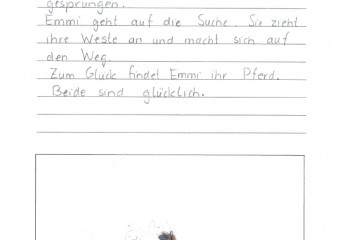 gesprungen.
Emmi geht auf die Suche. Sie zieht
ihre Weste an und macht sich auf
den Weg.
Zum Glück findet Emmi ihr Pferd.
Beide sind glücklich.